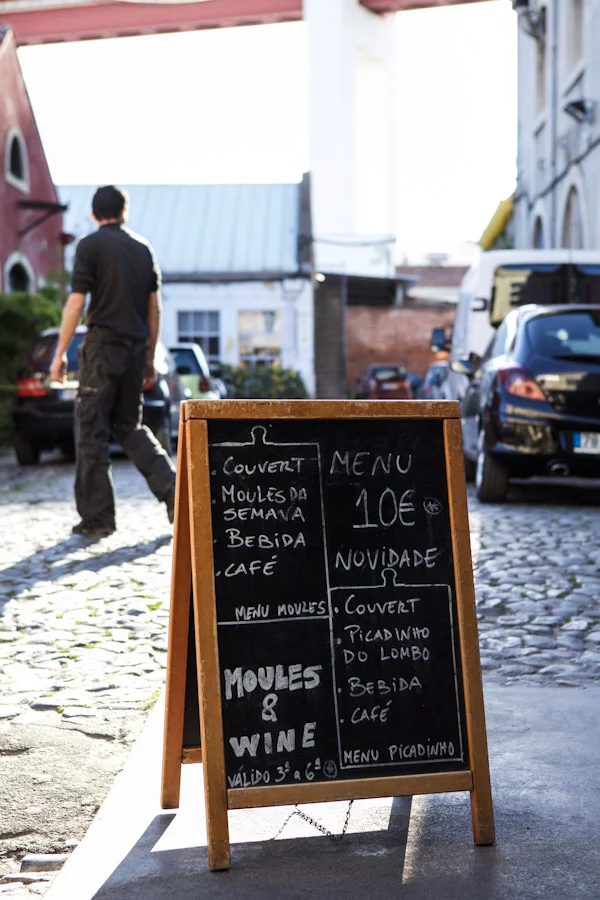 . COUVERT
. MOULES DA
SEMAVA
. BEBIDA
. CAFÉ
MENU MOULES
MOULES
&
WINE
VÁLIDO 3ª a 6ª
MENU
10€
NOVIDADE
. COUVERT
. PICADINHO
DO LOMBO
. BEBIDA
. CAFÉ
MENU PICADINHO